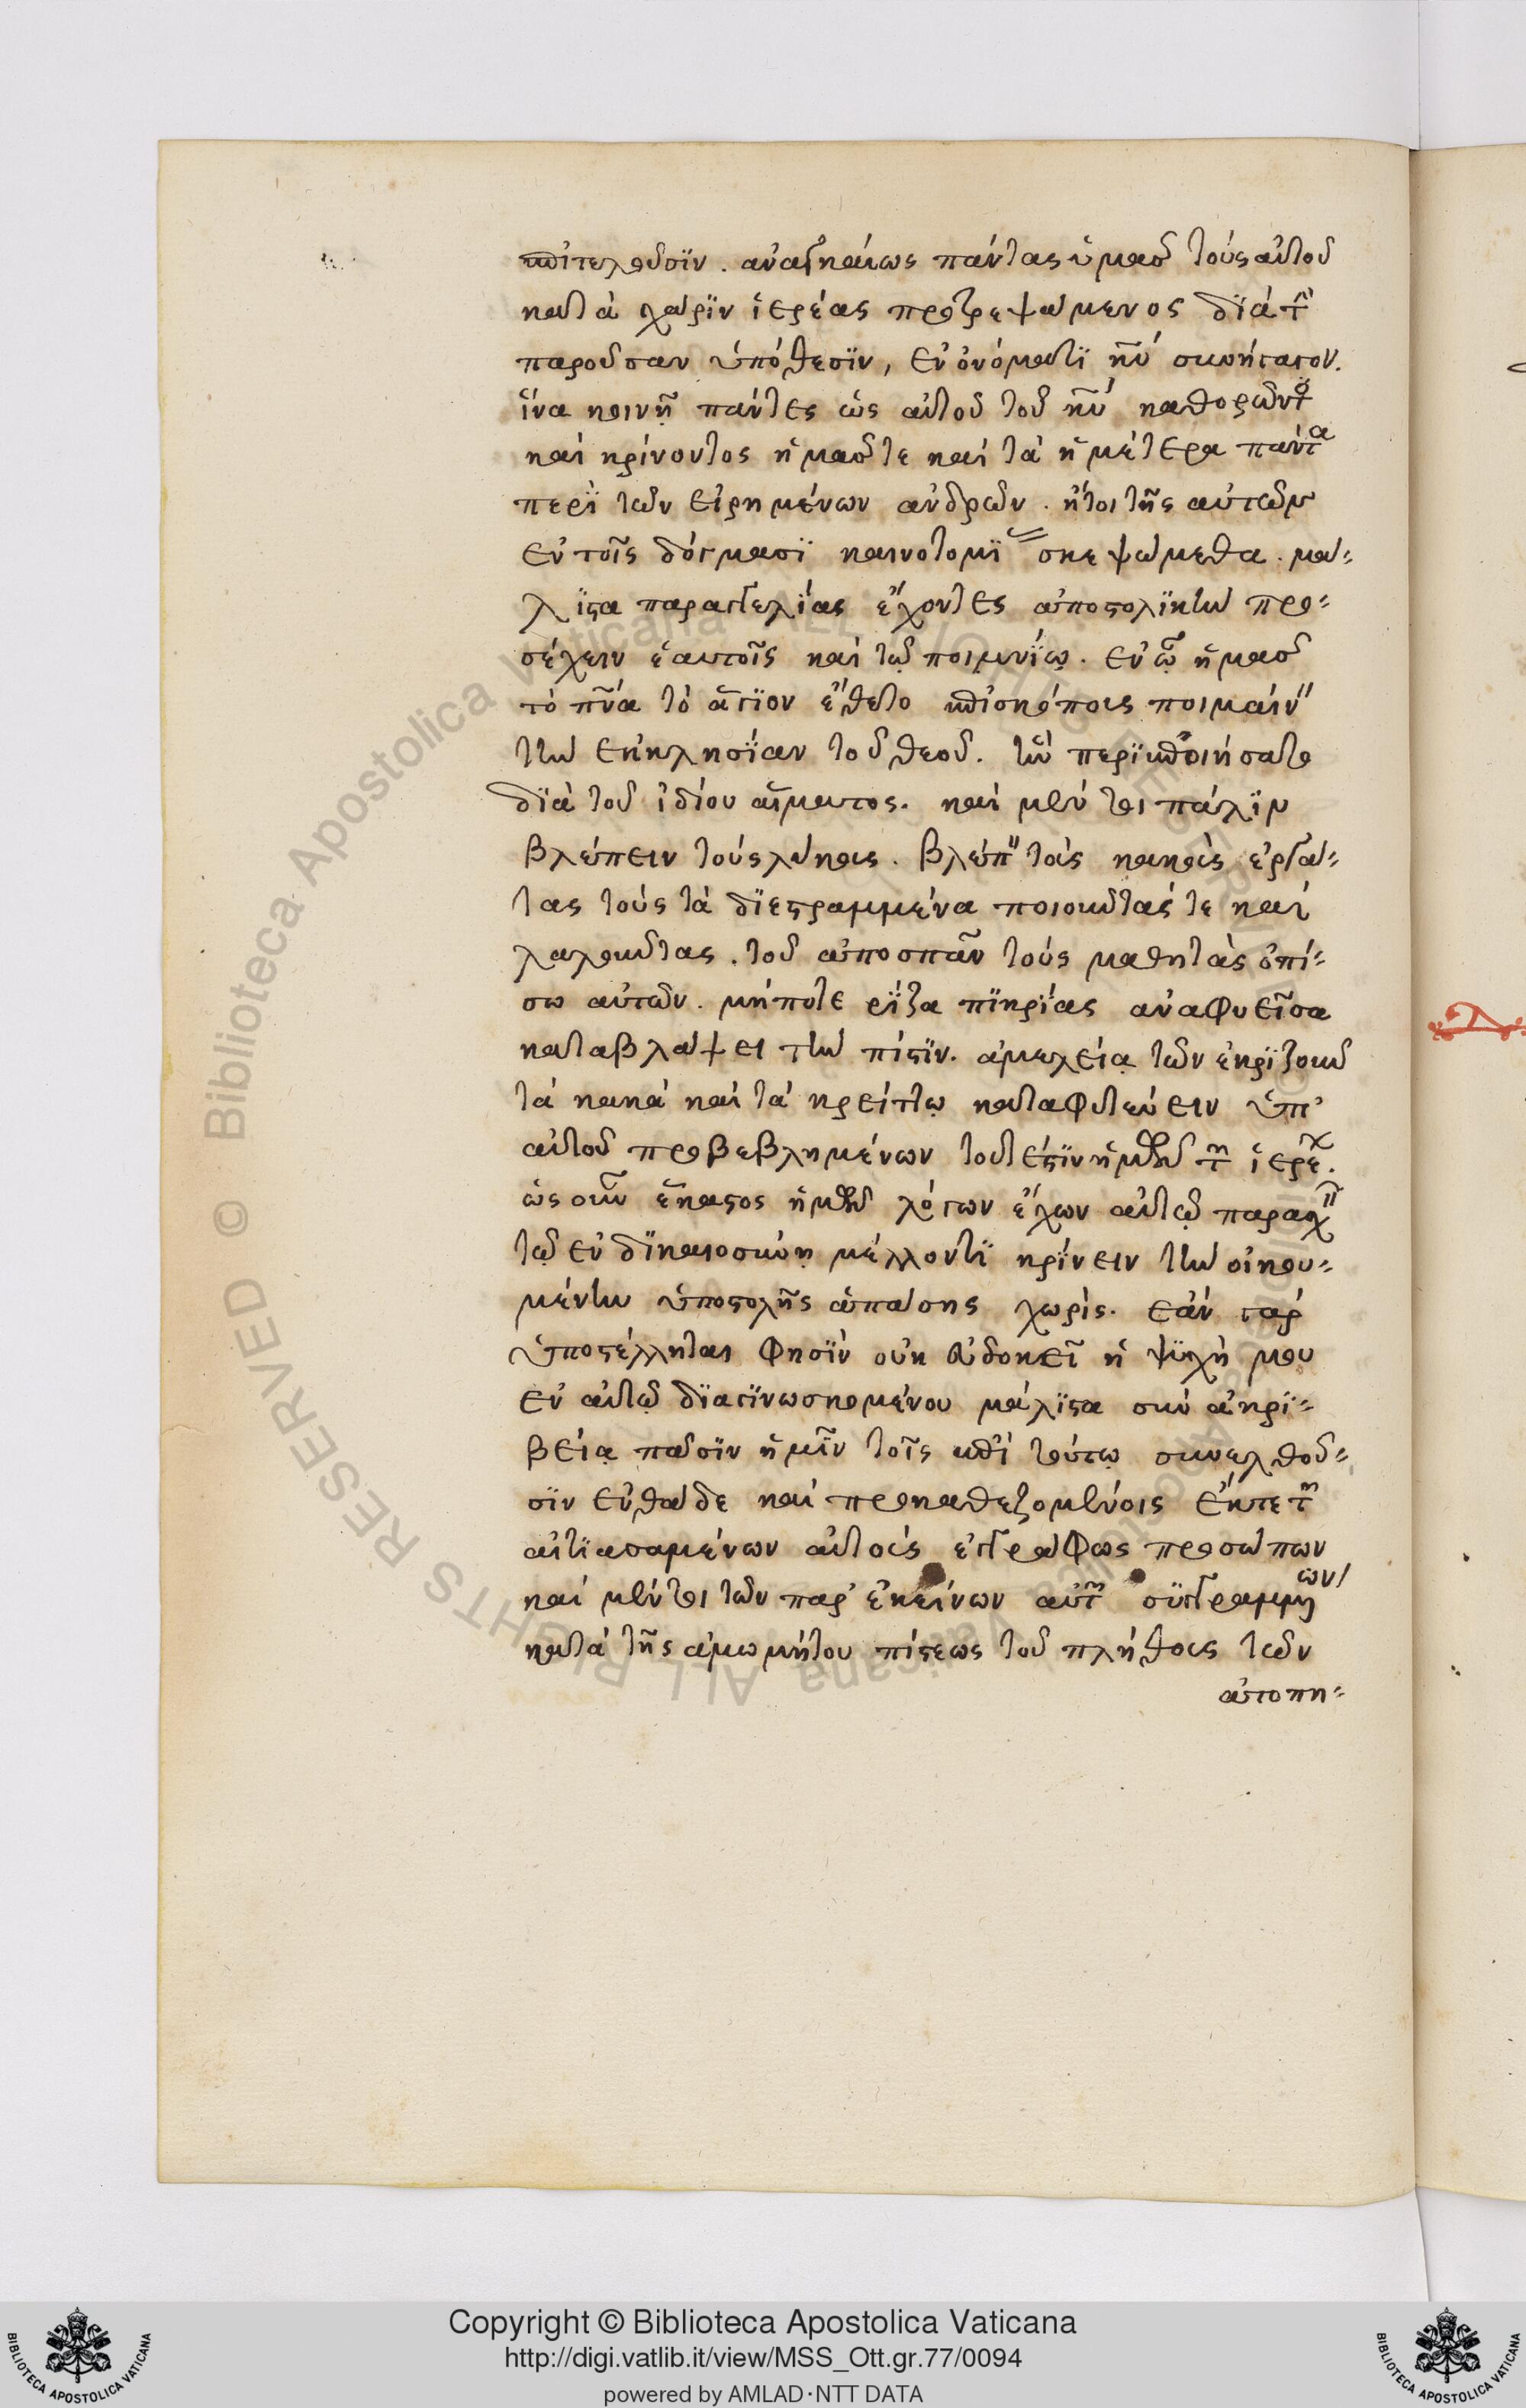 ἐπιτελοῦσϊν. ἀναγκαίως πάντας ὑμᾶσ τοὺς αὐτοῦ
κατὰ χάρϊν ἱερέας προτρεψάμενος δϊὰ τ
παροῦσαν ὑπόθεσϊν, ἐν ὀνόματϊ κ̅υ̅ συνήγαγον.
ἵνα κοινῇ πάντες ὡς αὐτοῦ τοῦ κ̅υ̅ καθορῶντο
καὶ κρίνοντος ἡμᾶσ τε καὶ τὰ ἡμέτερα πάντα
περῒ τῶν εἰρημένων ἀνδρῶν. ἤτοι τῆς αὐτῶν
ἐν τοῖς δόγμασϊ καινοτομϊ σκεψώμεθα. μά-
λϊστα παραγγελίας ἔχοντες ἀποστολϊκὴν προ-
σέχειν ἑαυτοῖς καὶ τῷ ποιμνίῳ. ἐν ᾧ ἡμᾶσ
τὸ π̅ν̅α̅ τὸ ἅγϊον ἔθετο ἐπισκόπους ποιμαίν
τὴν ἐκκλησϊαν τοῦ θεοῦ. ἣν περϊεποιήσατο
δϊὰ τοῦ ἰδίου αἵματος. καὶ μέν τοι πάλϊν
βλέπειν τοὺς λύκους. βλέπ τοὺς κακοὺς ἐργά-
τας τοὺς τὰ δϊεστραμμένα ποιοῦντάς τε καὶ
λαλοῦντας. τοῦ ἀποσπᾶν τοὺς μαθητὰς ὀπί-
σω αὐτῶν. μήποτε ῥίζα πϊκρίας ἀναφυεῖσα
καταβλάψει τὴν πίστϊν. ἀμελείᾳ τῶν ἐκρϊζοῦν
τὰ κακὰ καὶ τὰ κρείττω καταφυτεύειν ὑπ'
αὐτοῦ προβεβλημένων τουτέστϊν ἡμῶν τ ἱερε.
ὡς οὖν ἕκαστος ἡμῶν λόγων ἔχων αὐτῷ παρασχ
τῷ ἐν δϊκαιοσύνῃ μέλλοντϊ κρίνειν τὴν οἰκου-
μένην ὑποστολῆς ἁπάσης χωρίς. ἐὰν γὰρ
ὑποστέλληται φησϊν οὐκ εὐδοκεῖ ἡ ψϋχή μου
ἐν αὐτῷ δϊαγϊνωσκομένου μάλϊστα σὺν ἀκρϊ-
βείᾳ πᾶσϊν ἡμῖν τοῖς ἐπὶ τούτῳ συνελθοῦ-
σϊν ἐνθάδε καὶ προκαθεζομένοις ἔκ τε τ
αἰτϊασαμένων αὐτοὺς ἐγγράφως προσώπων
καὶ μέν τοι τῶν παρ' ἐκείνων αὐτ συγγραμμων
κατὰ τῆς ἀμωμήτου πίστεως τοῦ πλήθους τῶν
ἀτοπη-
Copyright © Biblioteca Apostolica Vaticana
http://digi.vatlib.it/view/MSS_Ott.gr.77/0094
powered by AMLAD·NTT DATA